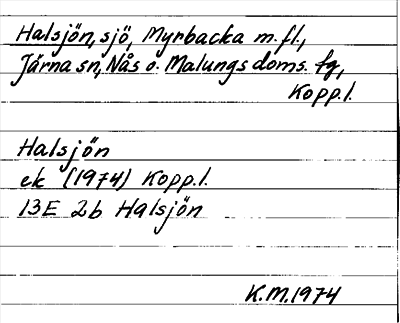 Halsjön, sjö, Myrbacka m.fl.,
Järna sn, Nås o. Malungs doms. fg,
Kopp.l.
Halsjön
ek (1974) Kopp.l.
13E 2b Halsjön
K.M.1974